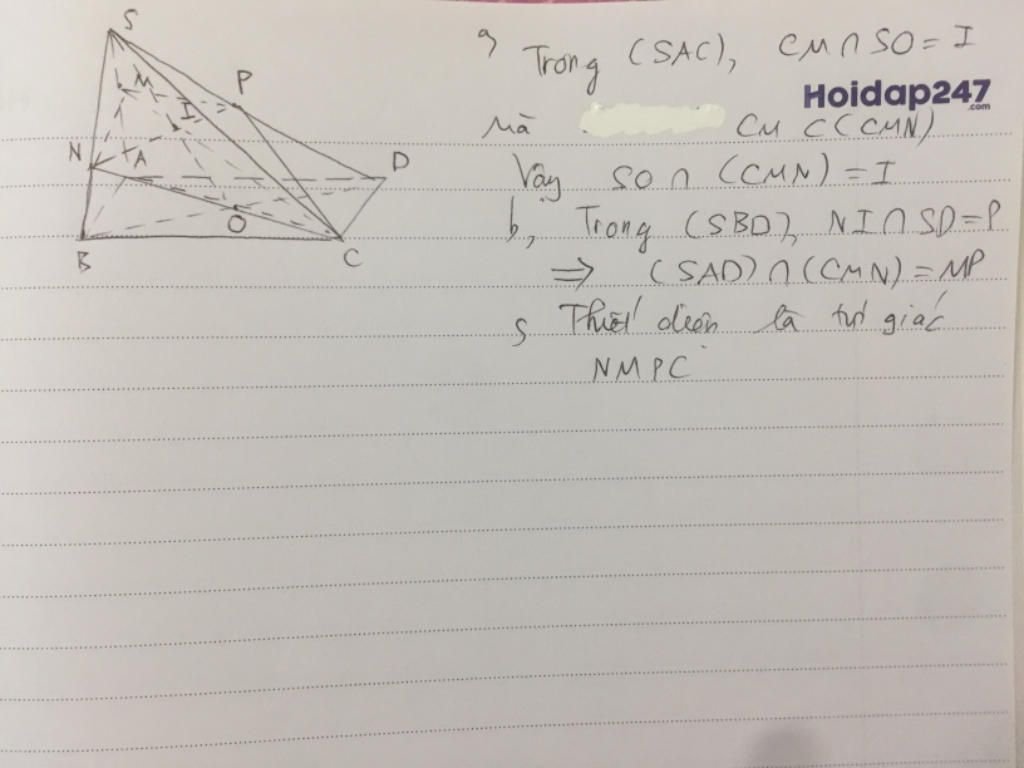 S
M
P
I
N
A
D
O
B
C
a, Trong (SAC), CM ∩ SO = I
Hoidap247
.com
mà CM ⊂ (CMN)
Vậy SO ∩ (CMN) = I
b, Trong (SBD), NI ∩ SD = P
⇒ (SAD) ∩ (CMN) = MP
c, Thiết diện là tứ giác
NMPC